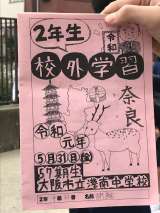 2年生
令和
校外学習
奈良
令和
元年
5月31日(金)
57期生
大阪市立港南中学校
2年